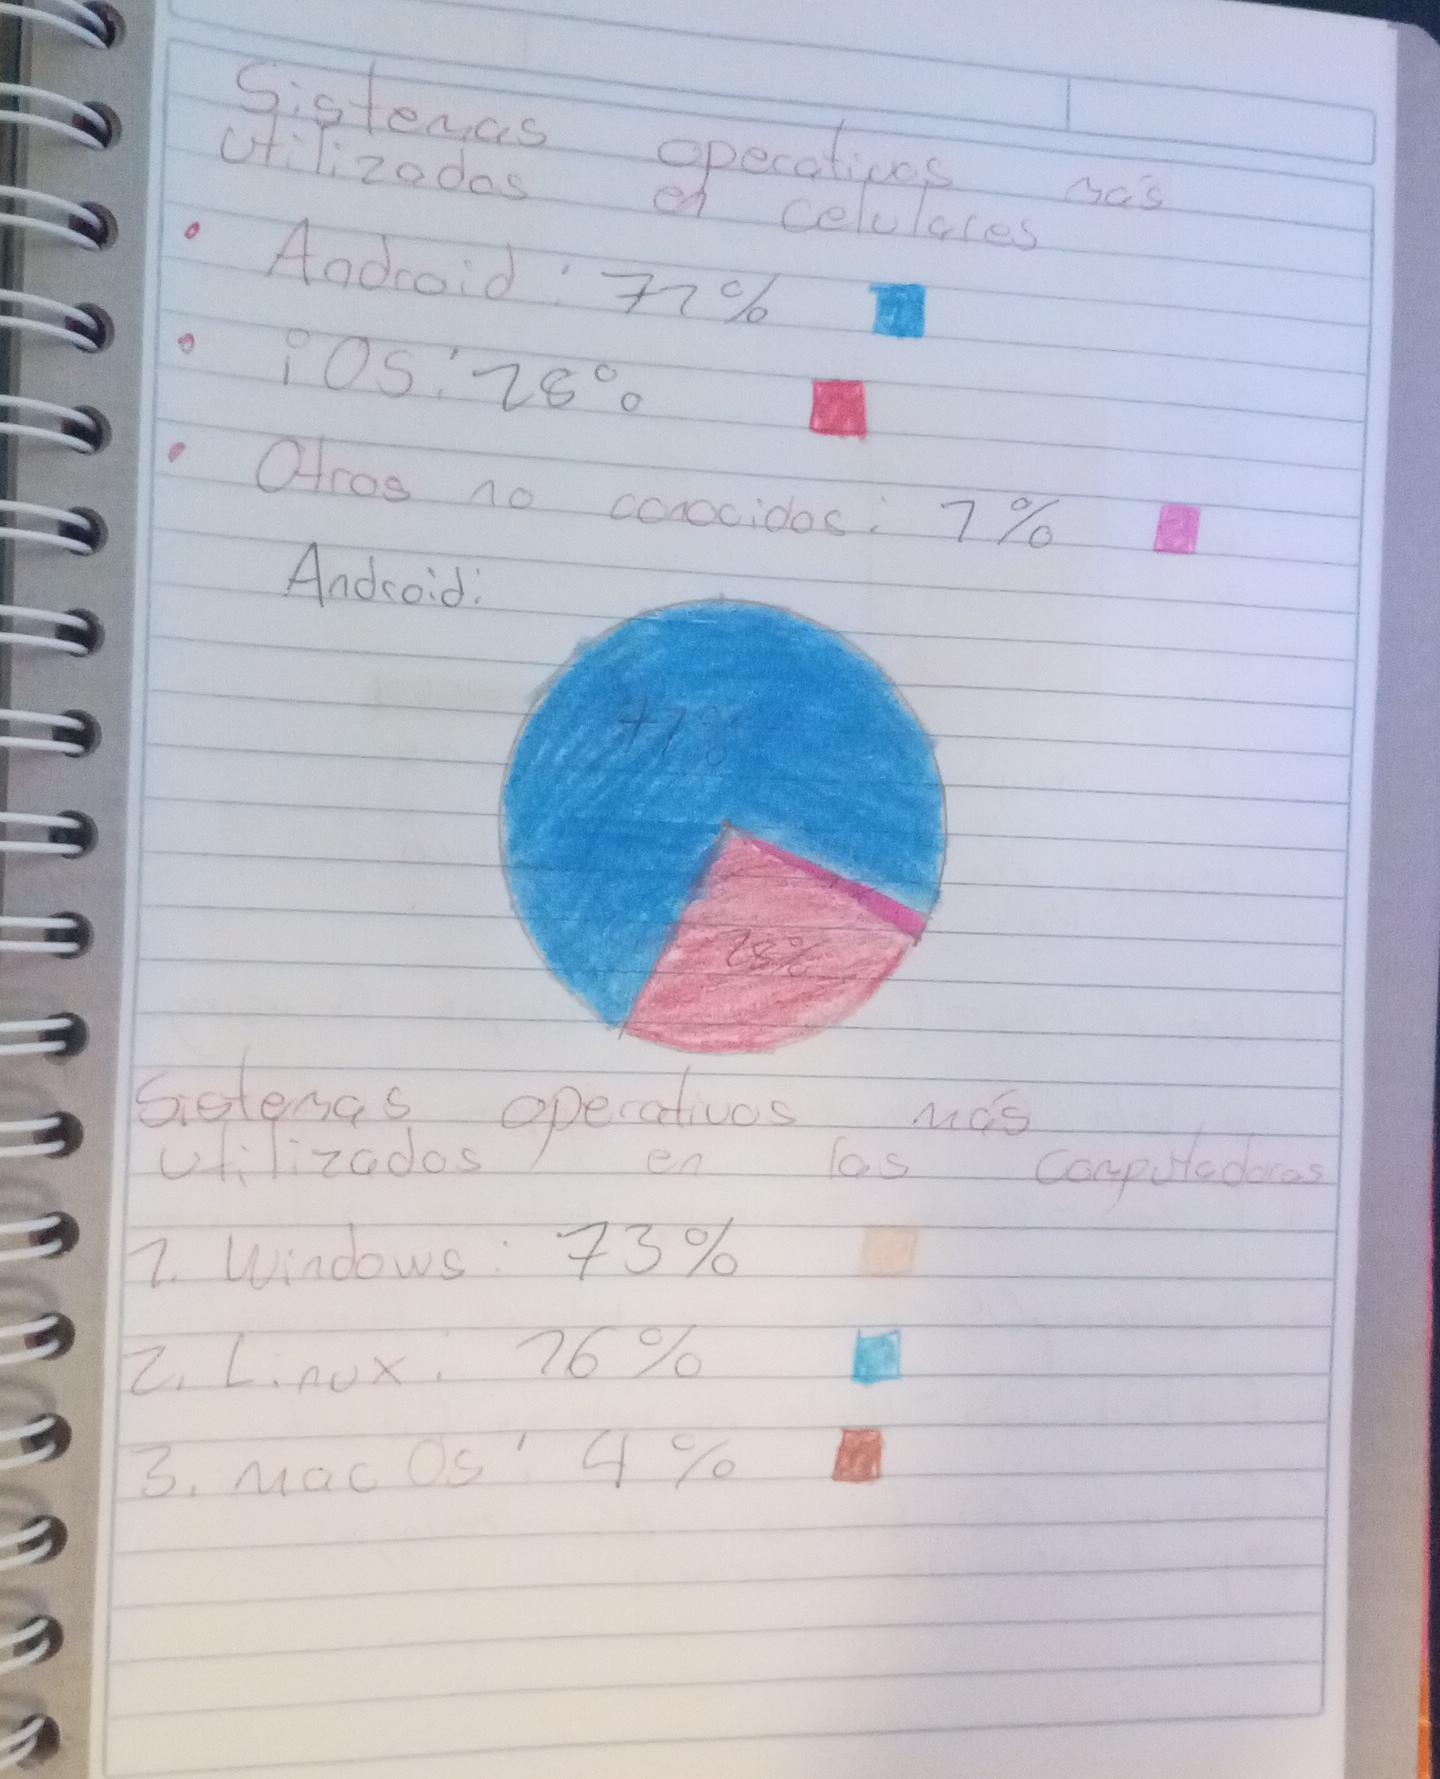 Sistemas operativos más
utilizados en celulares
• Android: 72%
• iOS: 28%
• Otros no conocidos: 1%
Android:
72%
28%
Sistemas operativos más
utilizados en las computadoras
1. Windows: 73%
2. Linux: 16%
3. mac Os: 4%